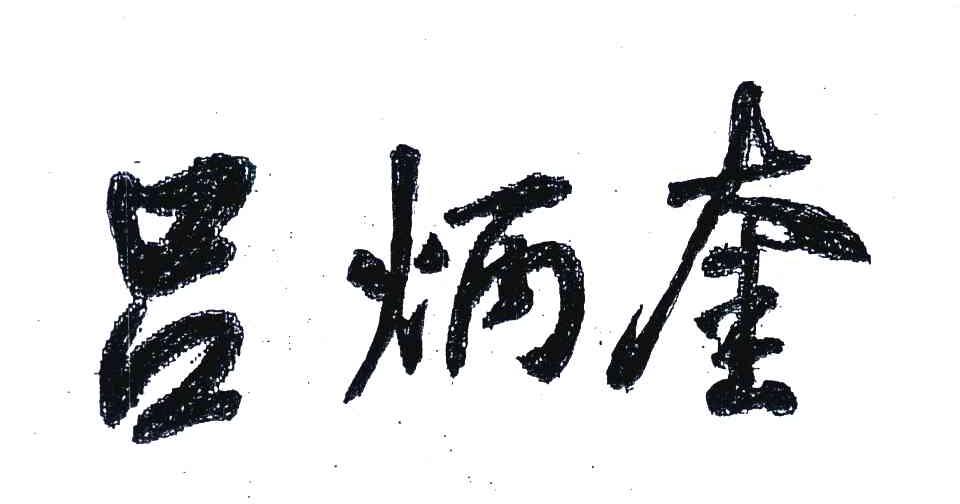 吕炳奎